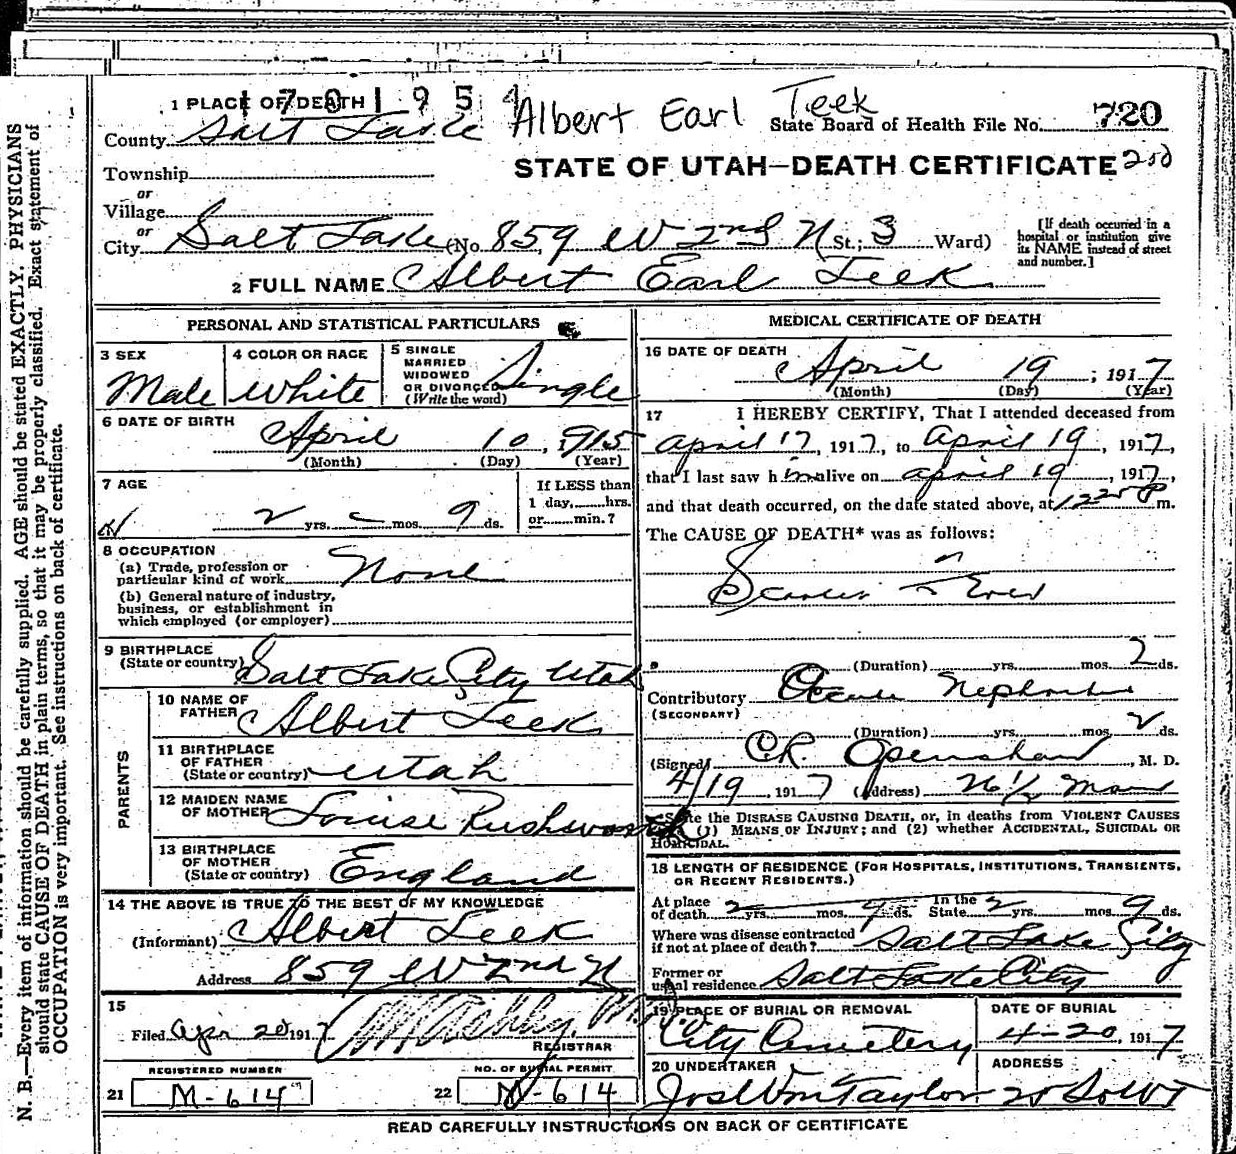 1 PLACE OF DEATH 1 7 0 1 9 5 4 Albert Earl Teek
County Salt Lake State Board of Health File No. 720
Township STATE OF UTAH—DEATH CERTIFICATE 2nd
or
Village
or
City Salt Lake (No. 859 W 2nd N St.; 3 Ward) [If death occurred in a hospital or institution give its NAME instead of street and number.]
2 FULL NAME Albert Earl Teek
PERSONAL AND STATISTICAL PARTICULARS
3 SEX Male
4 COLOR OR RACE White
5 SINGLE
MARRIED
WIDOWED
OR DIVORCED
(Write the word) Single
6 DATE OF BIRTH April 10, 1915
(Month) (Day) (Year)
7 AGE
2 yrs. – mos. 9 ds.
If LESS than
1 day,......hrs.
or......min.?
8 OCCUPATION
(a) Trade, profession or
particular kind of work None
(b) General nature of industry,
business, or establishment in
which employed (or employer)
9 BIRTHPLACE
(State or country) Salt Lake City Utah
PARENTS
10 NAME OF
FATHER Albert Teek
11 BIRTHPLACE
OF FATHER
(State or country) Utah
12 MAIDEN NAME
OF MOTHER Louise Rushworth
13 BIRTHPLACE
OF MOTHER
(State or country) England
14 THE ABOVE IS TRUE TO THE BEST OF MY KNOWLEDGE
(Informant) Albert Teek
Address 859 W 2nd N
15
Filed Apr 20 1917
REGISTRAR
REGISTERED NUMBER
21 M-614
NO. OF BURIAL PERMIT
22 M-614
MEDICAL CERTIFICATE OF DEATH
16 DATE OF DEATH
April 19; 1917
(Month) (Day) (Year)
17 I HEREBY CERTIFY, That I attended deceased from
April 17, 1917, to April 19, 1917,
that I last saw him alive on April 19, 1917,
and that death occurred, on the date stated above, at 12 P m.
The CAUSE OF DEATH* was as follows:
Scarlet Fever
(Duration) yrs. mos. 2 ds.
Contributory Acute Nephritis
(SECONDARY)
(Duration) yrs. mos. 2 ds.
(Signed) C.R. Openshaw, M. D.
4/19, 1917 (Address) 26 1/2 Main
*State the DISEASE CAUSING DEATH, or, in deaths from VIOLENT CAUSES
state (1) MEANS OF INJURY; and (2) whether ACCIDENTAL, SUICIDAL OR
HOMICIDAL.
18 LENGTH OF RESIDENCE (FOR HOSPITALS, INSTITUTIONS, TRANSIENTS,
OR RECENT RESIDENTS.)
At place of death 2 yrs. mos. 9 ds. In the State 2 yrs. mos. 9 ds.
Where was disease contracted
if not at place of death? Salt Lake City
Former or
usual residence Salt Lake City
19 PLACE OF BURIAL OR REMOVAL
City Cemetery
DATE OF BURIAL
4-20, 1917
20 UNDERTAKER
Jos Wm Taylor
ADDRESS
READ CAREFULLY INSTRUCTIONS ON BACK OF CERTIFICATE
N. B.—Every item of information should be carefully supplied. AGE should be stated EXACTLY. PHYSICIANS
should state CAUSE OF DEATH in plain terms, so that it may be properly classified. Exact statement of
OCCUPATION is very important. See instructions on back of certificate.